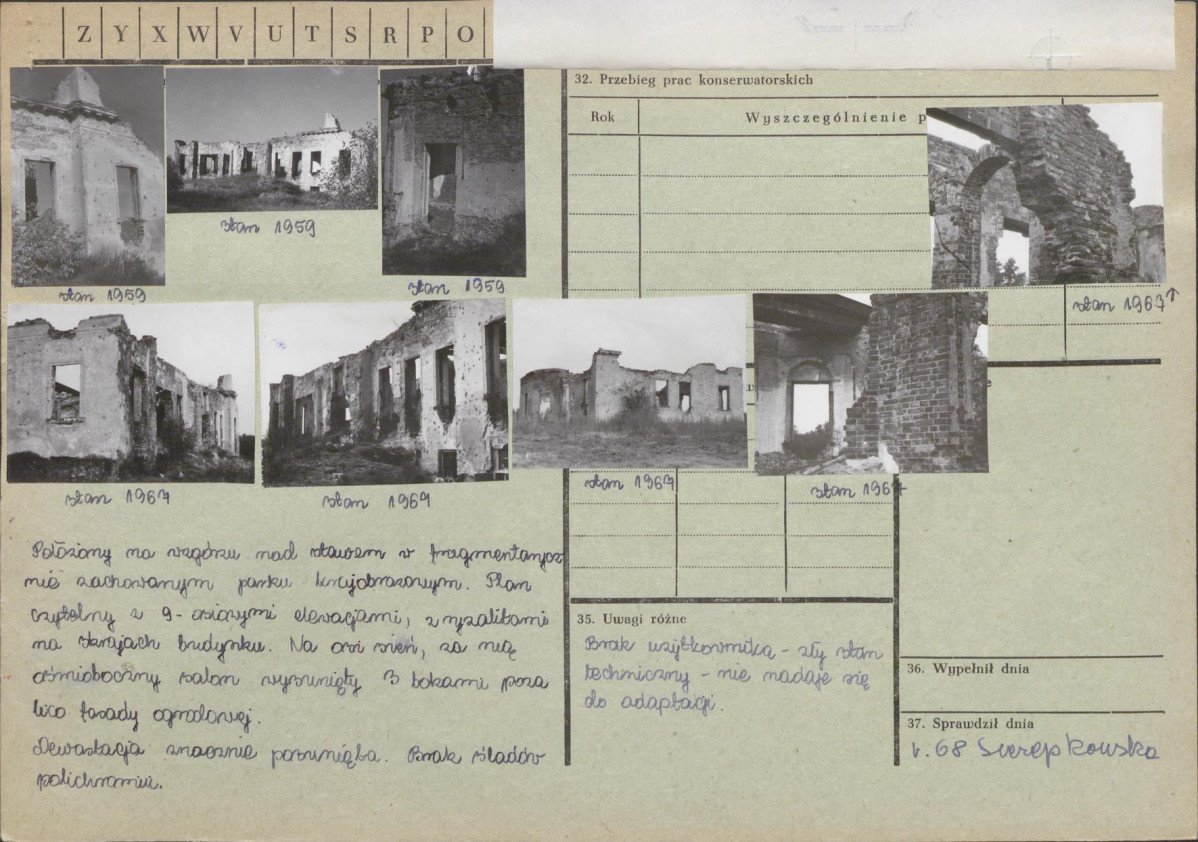 Z Y X W V U T S R P O
32. Przebieg prac konserwatorskich
Rok
Wyszczególnienie p
stan 1959
stan 1959
stan 1959
stan 1967
stan 1967
stan 1967
stan 1967
stan 1967
Położony na wzgórzu nad stawem w fragmentarycz
nie zachowanym parku krajobrazowym. Plan
czytelny z 9-osiowymi elewacjami, z ryzalitami
na skrajach budynku. Na osi sień, za nią
ośmioboczny salon wysunięty 3 bokami poza
lico fasady ogrodowej.
Dewastacja znacznie posunięta. Brak śladów
polichromii.
35. Uwagi różne
Brak użytkownika - zły stan
techniczny - nie nadaje się
do adaptacji.
36. Wypełnił dnia
37. Sprawdził dnia
v. 68